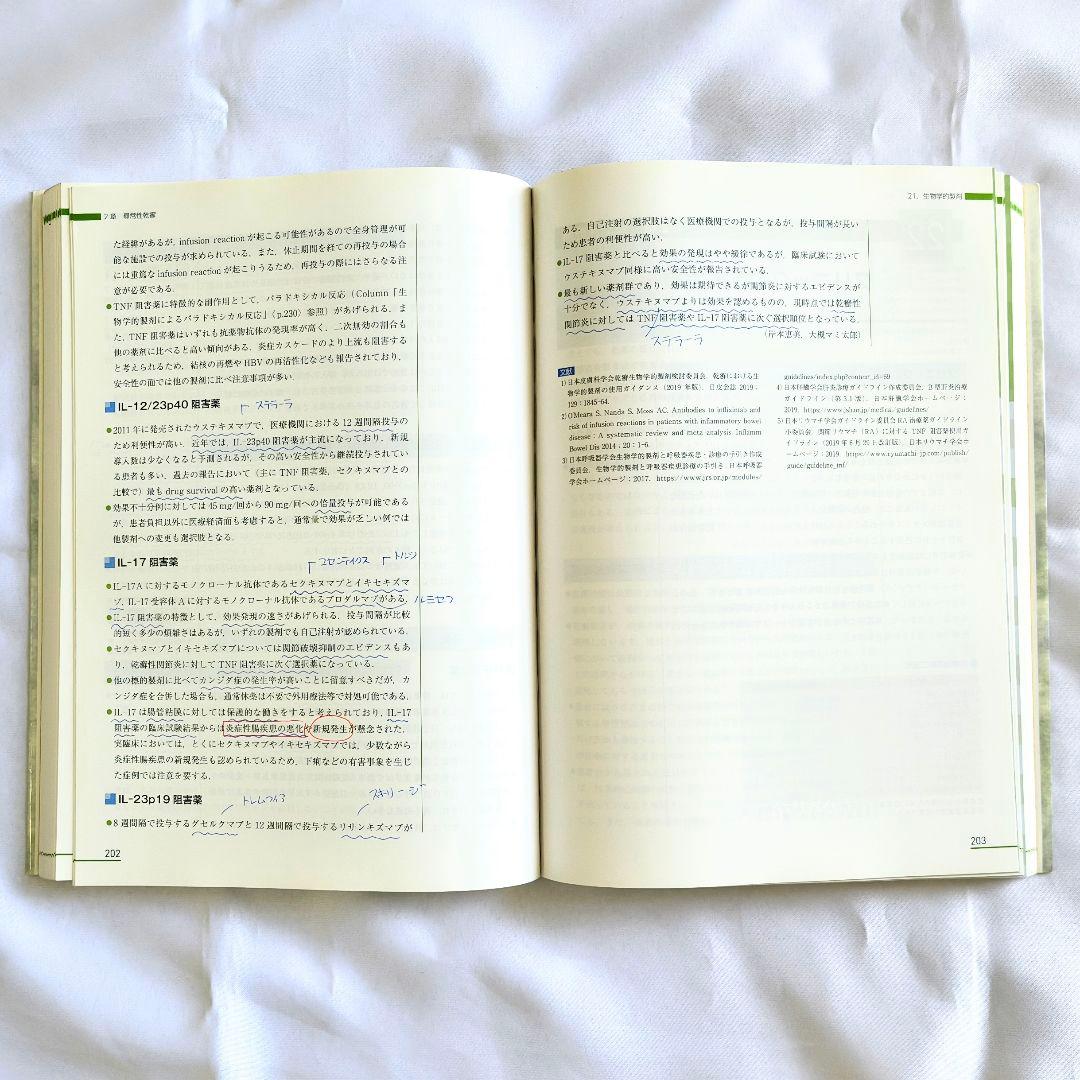 7章 尋常性乾癬
た経緯があるが，infusion reactionが起こる可能性があるので全身管理が可
能な施設での投与が求められている．また，休止期間を経ての再投与の場合
には重篤なinfusion reactionが起こりうるため，再投与の際にはさらなる注
意が必要である．
●TNF阻害薬に特徴的な副作用として，パラドキシカル反応（Column「生
物学的製剤によるパラドキシカル反応」（p.230）参照）があげられる．ま
た，TNF阻害薬はいずれも抗薬物抗体の発現率が高く，二次無効の割合も
他の薬剤に比べると高い傾向がある．炎症カスケードのより上流も阻害する
と考えられるため，結核の再燃やHBVの再活性化なども報告されており，
安全性の面では他の製剤に比べ注意事項が多い．
IL-12/23p40 阻害薬
ステラーラ
●2011年に発売されたウステキヌマブで，医療機関における12週間隔投与の
ため利便性が高い．近年では，IL-23p40阻害薬が主流になっており，新規
導入数は少なくなると予測されるが，その高い安全性から継続投与されてい
る患者も多い．過去の報告において（主にTNF阻害薬，セクキヌマブとの
比較で）最もdrug survivalの高い薬剤となっている．
●効果不十分例に対しては45 mg/回から90 mg/回への倍量投与が可能である
が，患者負担以外に医療経済面も考慮すると，通常量で効果が乏しい例では
他製剤への変更も選択肢となる．
IL-17 阻害薬
コセンティクス
トルツ
●IL-17Aに対するモノクローナル抗体であるセクキヌマブとイキセキズマ
ブ，IL-17受容体Aに対するモノクローナル抗体であるブロダルマブがある．
ルミセフ
●IL-17阻害薬の特徴として，効果発現の速さがあげられる．投与間隔が比較
的短く多少の煩雑さはあるが，いずれの製剤でも自己注射が認められている．
●セクキヌマブとイキセキズマブについては関節破壊抑制のエビデンスもあ
り，乾癬性関節炎に対してTNF阻害薬に次ぐ選択薬になっている．
●他の標的製剤に比べてカンジダ症の発生率が高いことに留意すべきだが，カ
ンジダ症を合併した場合も，通常休薬は不要で外用療法等で対処可能である．
●IL-17は腸管粘膜に対しては保護的な働きをすると考えられており，IL-17
阻害薬の臨床試験結果からは炎症性腸疾患の悪化や新規発生が懸念された．
実臨床においては，とくにセクキヌマブやイキセキズマブでは，少数ながら
炎症性腸疾患の新規発生も認められているため，下痢などの有害事象を生じ
た症例では注意を要する．
IL-23p19 阻害薬
トレムフィア
スキリージ
●8週間隔で投与するグセルクマブと12週間隔で投与するリサンキズマブが
202
21．生物学的製剤
ある．自己注射の選択肢はなく医療機関での投与となるが，投与間隔が長い
ため患者の利便性が高い．
●IL-17阻害薬と比べると効果の発現はやや緩徐であるが，臨床試験において
ウステキヌマブ同様に高い安全性が報告されている．
●最も新しい薬剤群であり，効果は期待できるが関節炎に対するエビデンスが
十分でなく，ウステキヌマブよりは効果を認めるものの，現時点では乾癬性
関節炎に対してはTNF阻害薬やIL-17阻害薬に次ぐ選択順位となっている．
ステラーラ
（岸本恵美，大槻マミ太郎）
文献
1）日本皮膚科学会乾癬生物学的製剤検討委員会．乾癬における生
物学的製剤の使用ガイダンス（2019年版）．日皮会誌 2019；
129：1845-64.
2）O'Meara S, Nanda S, Moss AC. Antibodies to infliximab and
risk of infusion reactions in patients with inflammatory bowel
disease：A systematic review and meta analysis. Inflamm
Bowel Dis 2014；20：1-6.
3）日本呼吸器学会生物学的製剤と呼吸器疾患・診療の手引き作成
委員会．生物学的製剤と呼吸器疾患診療の手引き．日本呼吸器
学会ホームページ：2017. https://www.jrs.or.jp/modules/
guidelines/index.php?content_id=69
4）日本肝臓学会肝炎診療ガイドライン作成委員会．B型肝炎治療
ガイドライン（第3.1版）．日本肝臓学会ホームページ：
2019. https://www.jsh.or.jp/medical/guidelines/
5）日本リウマチ学会ガイドライン委員会RA治療薬ガイドライン
小委員会．関節リウマチ（RA）に対するTNF阻害薬使用ガ
イドライン（2019年6月29日改訂版）．日本リウマチ学会ホ
ームページ：2019. https://www.ryumachi-jp.com/publish/
guide/guideline_tnf/
203